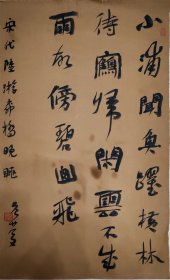 小浦聞魚躍橫林
待鶴歸閑雲不成
雨故傍碧山飛
宋代陸游柳橋晚眺